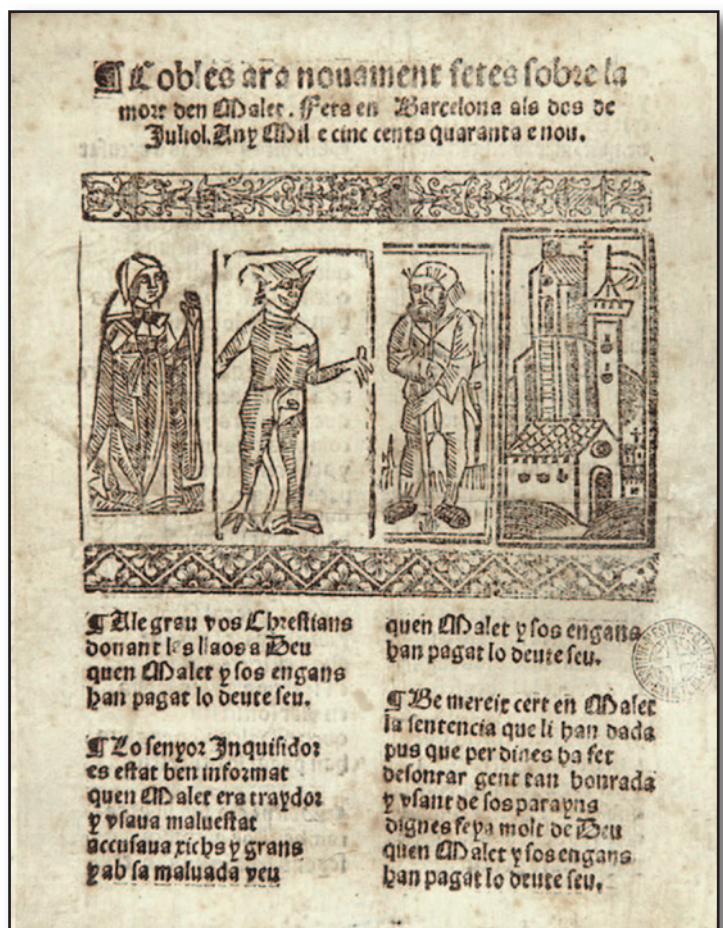 ¶ Cobles ara nouament fetes sobre la
mort den Malet. Feta en Barcelona als dos de
Juliol. Any Mil e cinc cents quaranta e nou.
¶ Alegrau vos Chrestians
donant les llaos a Deu
quen Malet y sos engans
han pagat lo deute seu.
¶ Lo senyor Inquisidor
es estat ben informat
quen Malet era traydor
y vsaua maluestat
accusaua richs y grans
y ab sa maluada veu
quen Malet y sos engans
han pagat lo deute seu.
¶ Be mereix cert en Malet
la sentencia que li han dada
pus que per dines ha fet
desonrar gent tan honrada
y vsant de sos parayns
dignes feya molt de Deu
quen Malet y sos engans
han pagat lo deute seu,